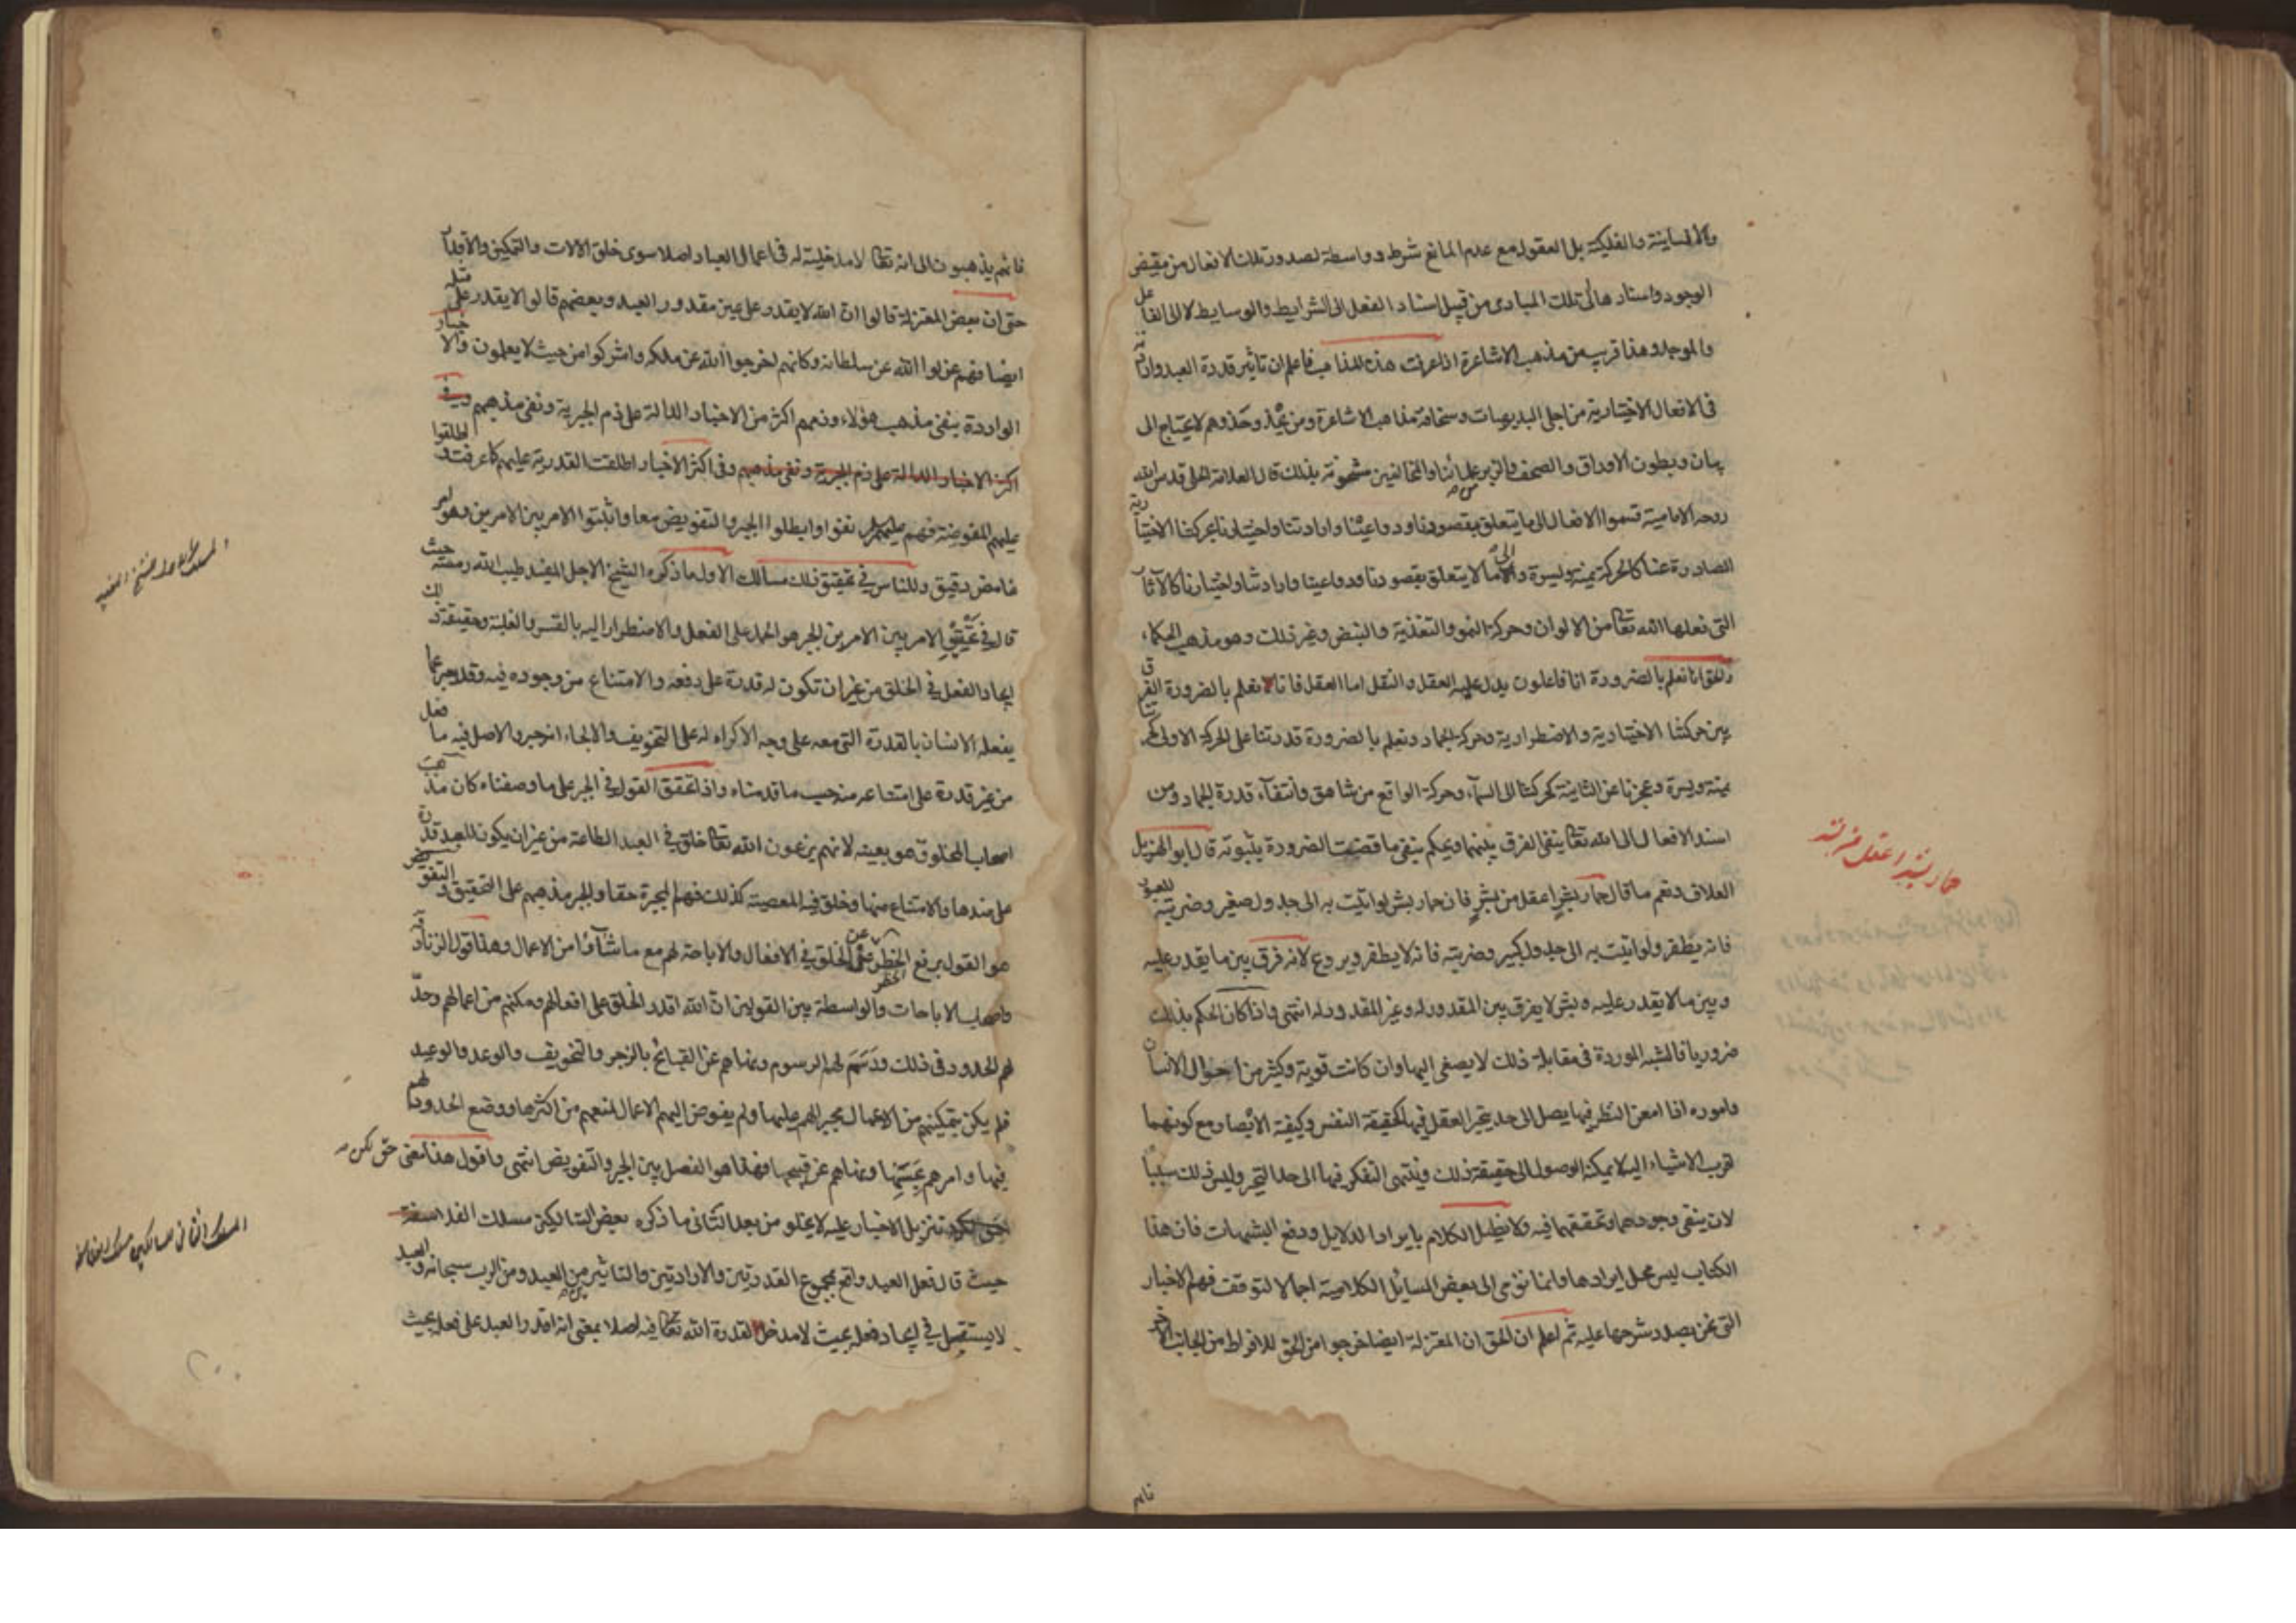 والانسانية والفلكية بل العقول مع عدم المانع شرط وواسطة لصدور تلك الافعال من مفيض
الوجود واسنادها الى تلك المبادى من قبيل اسناد الفعل الى الشرايط والوسايط لا الى الفاعل
والموجد وهذا قريب من مذهب الاشاعرة اذا عرفت هذه المذاهب فاعلم ان تاثير قدرة العبد وارادته
فى الافعال الاختيارية من اجلى البديهيات وسخافة مذاهب الاشاعرة ومن يحذو حذوهم لا يحتاج الى
بيان وبطون الاوراق والصحف والزبر علمائنا والمخالفين مشحونة بذلك قال العلامة الحلى قدس الله
روحه الامامية قسموا الافعال الى ما يتعلق بقصودنا ودواعينا وارادتنا واختيارنا بحركتنا الاختيارية
الصادرة عنا كالحركة يمنة ويسرة والى ما لا يتعلق بقصودنا ودواعينا وارادتنا واختيارنا كالآثار
التى فعلها الله تعالى من الالوان وحركة النمو والتغذية والنبض وغير ذلك وهو مذهب الحكماء
والحق انا نعلم بالضرورة انا فاعلون يدل عليه العقل والنقل اما العقل فانا نعلم بالضرورة الفرق
بين حركتنا الاختيارية والاضطرارية وحركة الجماد ونعلم بالضرورة قدرتنا على الحركة الاولى كحركتنا
يمنة ويسرة وعجزنا عن الثانية كحركتنا الى السماء وحركة الواقع من شاهق وانتفاء قدرة الجماد ومن
اسند الافعال الى الله تعالى ينفى الفرق بينهما ويحكم بنفى ما قضت الضرورة بثبوته قال ابو الهذيل
العلاف ونعم ما قال حمار بشر اعقل من بشر فان حمار بشر لو اتيت به الى جدول صغير وضربته للعبور
فانه يطفر ولو اتيت به الى جدول كبير وضربته فانه لا يطفر ويروع لانه فرق بين ما يقدر عليه
وبين ما لا يقدر عليه وبشر لا يفرق بين المقدور له وغير المقدور له انتهى واذا كان الحكم بذلك
ضروريا فالشبه الموردة فى مقابلة ذلك لا يصغى اليها وان كانت قوية وكثير من احوال الانسان
واموره اذا امعن النظر فيها يصل الى حد يتحير العقل فيها كحقيقة النفس وكيفية الابصار مع كونهما
اقرب الاشياء اليه لا يمكنه الوصول الى حقيقة ذلك وينتهى التفكر فيها الى حد التحير وليس ذلك سببا
لان ينفى وجودهما وتحققهما فيه ولا نطيل الكلام بايراد الدلايل ودفع الشبهات فان هذا
الكتاب ليس محل ايرادها وانما نومى الى بعض المسائل الكلامية اجمالا لتوقف فهم الاخبار
التى نحن بصدد شرحها عليه ثم اعلم ان الحق ان المعتزلة ايضا خرجوا من الحق للافراط من الجانب الآخر
حمار بشر اعقل من بشر
فانهم
فانهم يذهبون الى انه تعالى لا مدخلية له فى اعمال العباد اصلا سوى خلق الآلات والتمكين والاقدار
حتى ان بعض المعتزلة قالوا ان الله لا يقدر على عين مقدور العبد وبعضهم قالوا لا يقدر على مثله
ايضا فهم عزلوا الله عن سلطانه وكانهم اخرجوا الله عن ملكه واشركوا من حيث لا يعلمون والاخبار
الواردة بنفى مذهب هؤلاء وذمهم اكثر من الاخبار الدالة على ذم الجبرية ونفى مذهبهم
اكثر الاخبار الدالة على ذم الجبرية ونفى مذهبهم وفى اكثر الاخبار اطلقت القدرية عليهم كما عرفت واطلقوا
عليهم المفوضة فهم عليهم السلام نفوا وابطلوا الجبر والتفويض معا واثبتوا الامر بين الامرين وهو امر
غامض دقيق وللناس فى تحقيق ذلك مسالك الاول ما ذكره الشيخ الاجل المفيد طيب الله رمسه حيث
قال فى تحقيق الامر بين الامرين الجبر هو الحمل على الفعل والاضطرار اليه بالقسر والغلبة وحقيقة ذلك
ايجاد الفعل فى الخلق من غير ان تكون له قدرة على دفعه والامتناع من وجوده فيه وقد يعبر عما
يفعله الانسان بالقدرة التى معه على وجه الاكراه له على التخويف والالجاء انه جبر والاصل فيه ما فعل
من غير قدرة على امتناعه منه حسب ما قدمناه واذا تحقق القول فى الجبر على ما وصفناه كان مذهب
اصحاب المخلوق هو بعينه لانهم يزعمون ان الله تعالى خلق فى العبد الطاعة من غير ان يكون للعبد قدرة
على ضدها والامتناع منها وخلق فيه المعصية كذلك فهم المجبرة حقا والجبر مذهبهم على التحقيق والتفويض
هو القول برفع الحظر عن الخلق فى الافعال والاباحة لهم مع ما شاؤا من الاعمال وهذا قول الزنادقة
واصحاب الاباحات والواسطة بين القولين ان الله اقدر الخلق على افعالهم ومكنهم من اعمالهم وحد
لهم الحدود فى ذلك ورسم لهم الرسوم ونهاهم عن القبائح بالزجر والتخويف والوعد والوعيد
فلم يكن بتمكينهم من الاعمال مجبرا لهم عليها ولم يفوض اليهم الاعمال لمنعهم من اكثرها ووضع الحدود لهم
فيها وامرهم بحسنها ونهاهم عن قبيحها فهذا هو الفصل بين الجبر والتفويض انتهى واقول هذا معنى حق لكن
تنزيل الاخبار عليه لا يخلو من بعد الثانى ما ذكره بعض السالكين مسلك الفلاسفة
حيث قال فعل العبد واقع بمجموع القدرتين والارادتين والتاثيرين من العبد ومن الرب سبحانه والعبد
لا يستقل فى ايجاد فعله بحيث لا مدخل لقدرة الله تعالى فيه اصلا بمعنى انه اقدر العبد على فعله بحيث